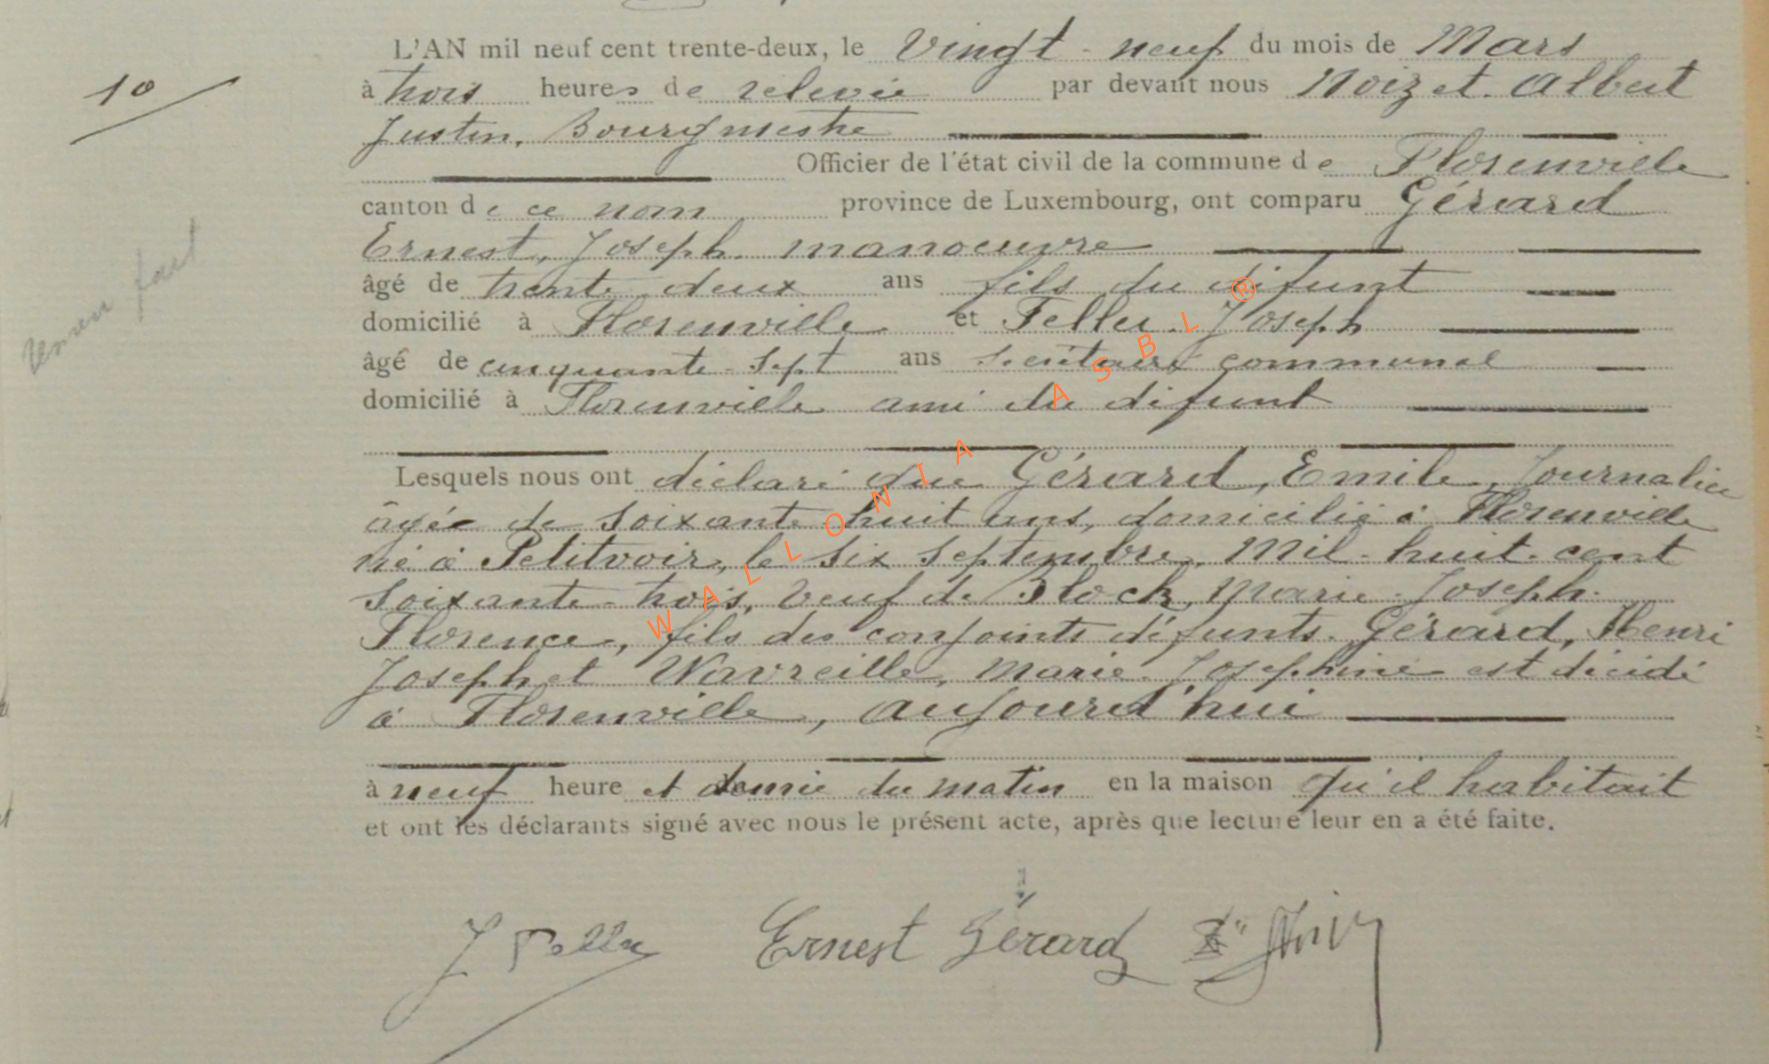 L'AN mil neuf cent trente-deux, le Vingt-neuf du mois de Mars
10
à trois heures de relevée par devant nous Noizet. Albert
Justin, Bourgmestre
Officier de l'état civil de la commune de Florenville
canton de ce nom province de Luxembourg, ont comparu Gérard
Ernest, Joseph. manoeuvre
âgé de trente deux ans fils du défunt
domicilié à Florenville et Feller Joseph
âgé de cinquante-sept ans Secrétaire communal
domicilié à Florenville ami du défunt
Lesquels nous ont déclaré que Gérard, Emile, Journalier
âgée de soixante huit ans, domicilié à Florenville
né à Petitvoir, le six Septembre, Mil-huit-cent
soixante-trois, Veuf de Block, Marie-Joseph-
Florence, fils des conjoints défunts. Gérard, Henri
Joseph et Wavreille, Marie-Josephine est décédé
à Florenville, aujourd'hui
à neuf heure et demie du matin en la maison qu'il habitait
et ont les déclarants signé avec nous le présent acte, après que lecture leur en a été faite.
J Feller Ernest Gérard
WALLONIA ASBL ®